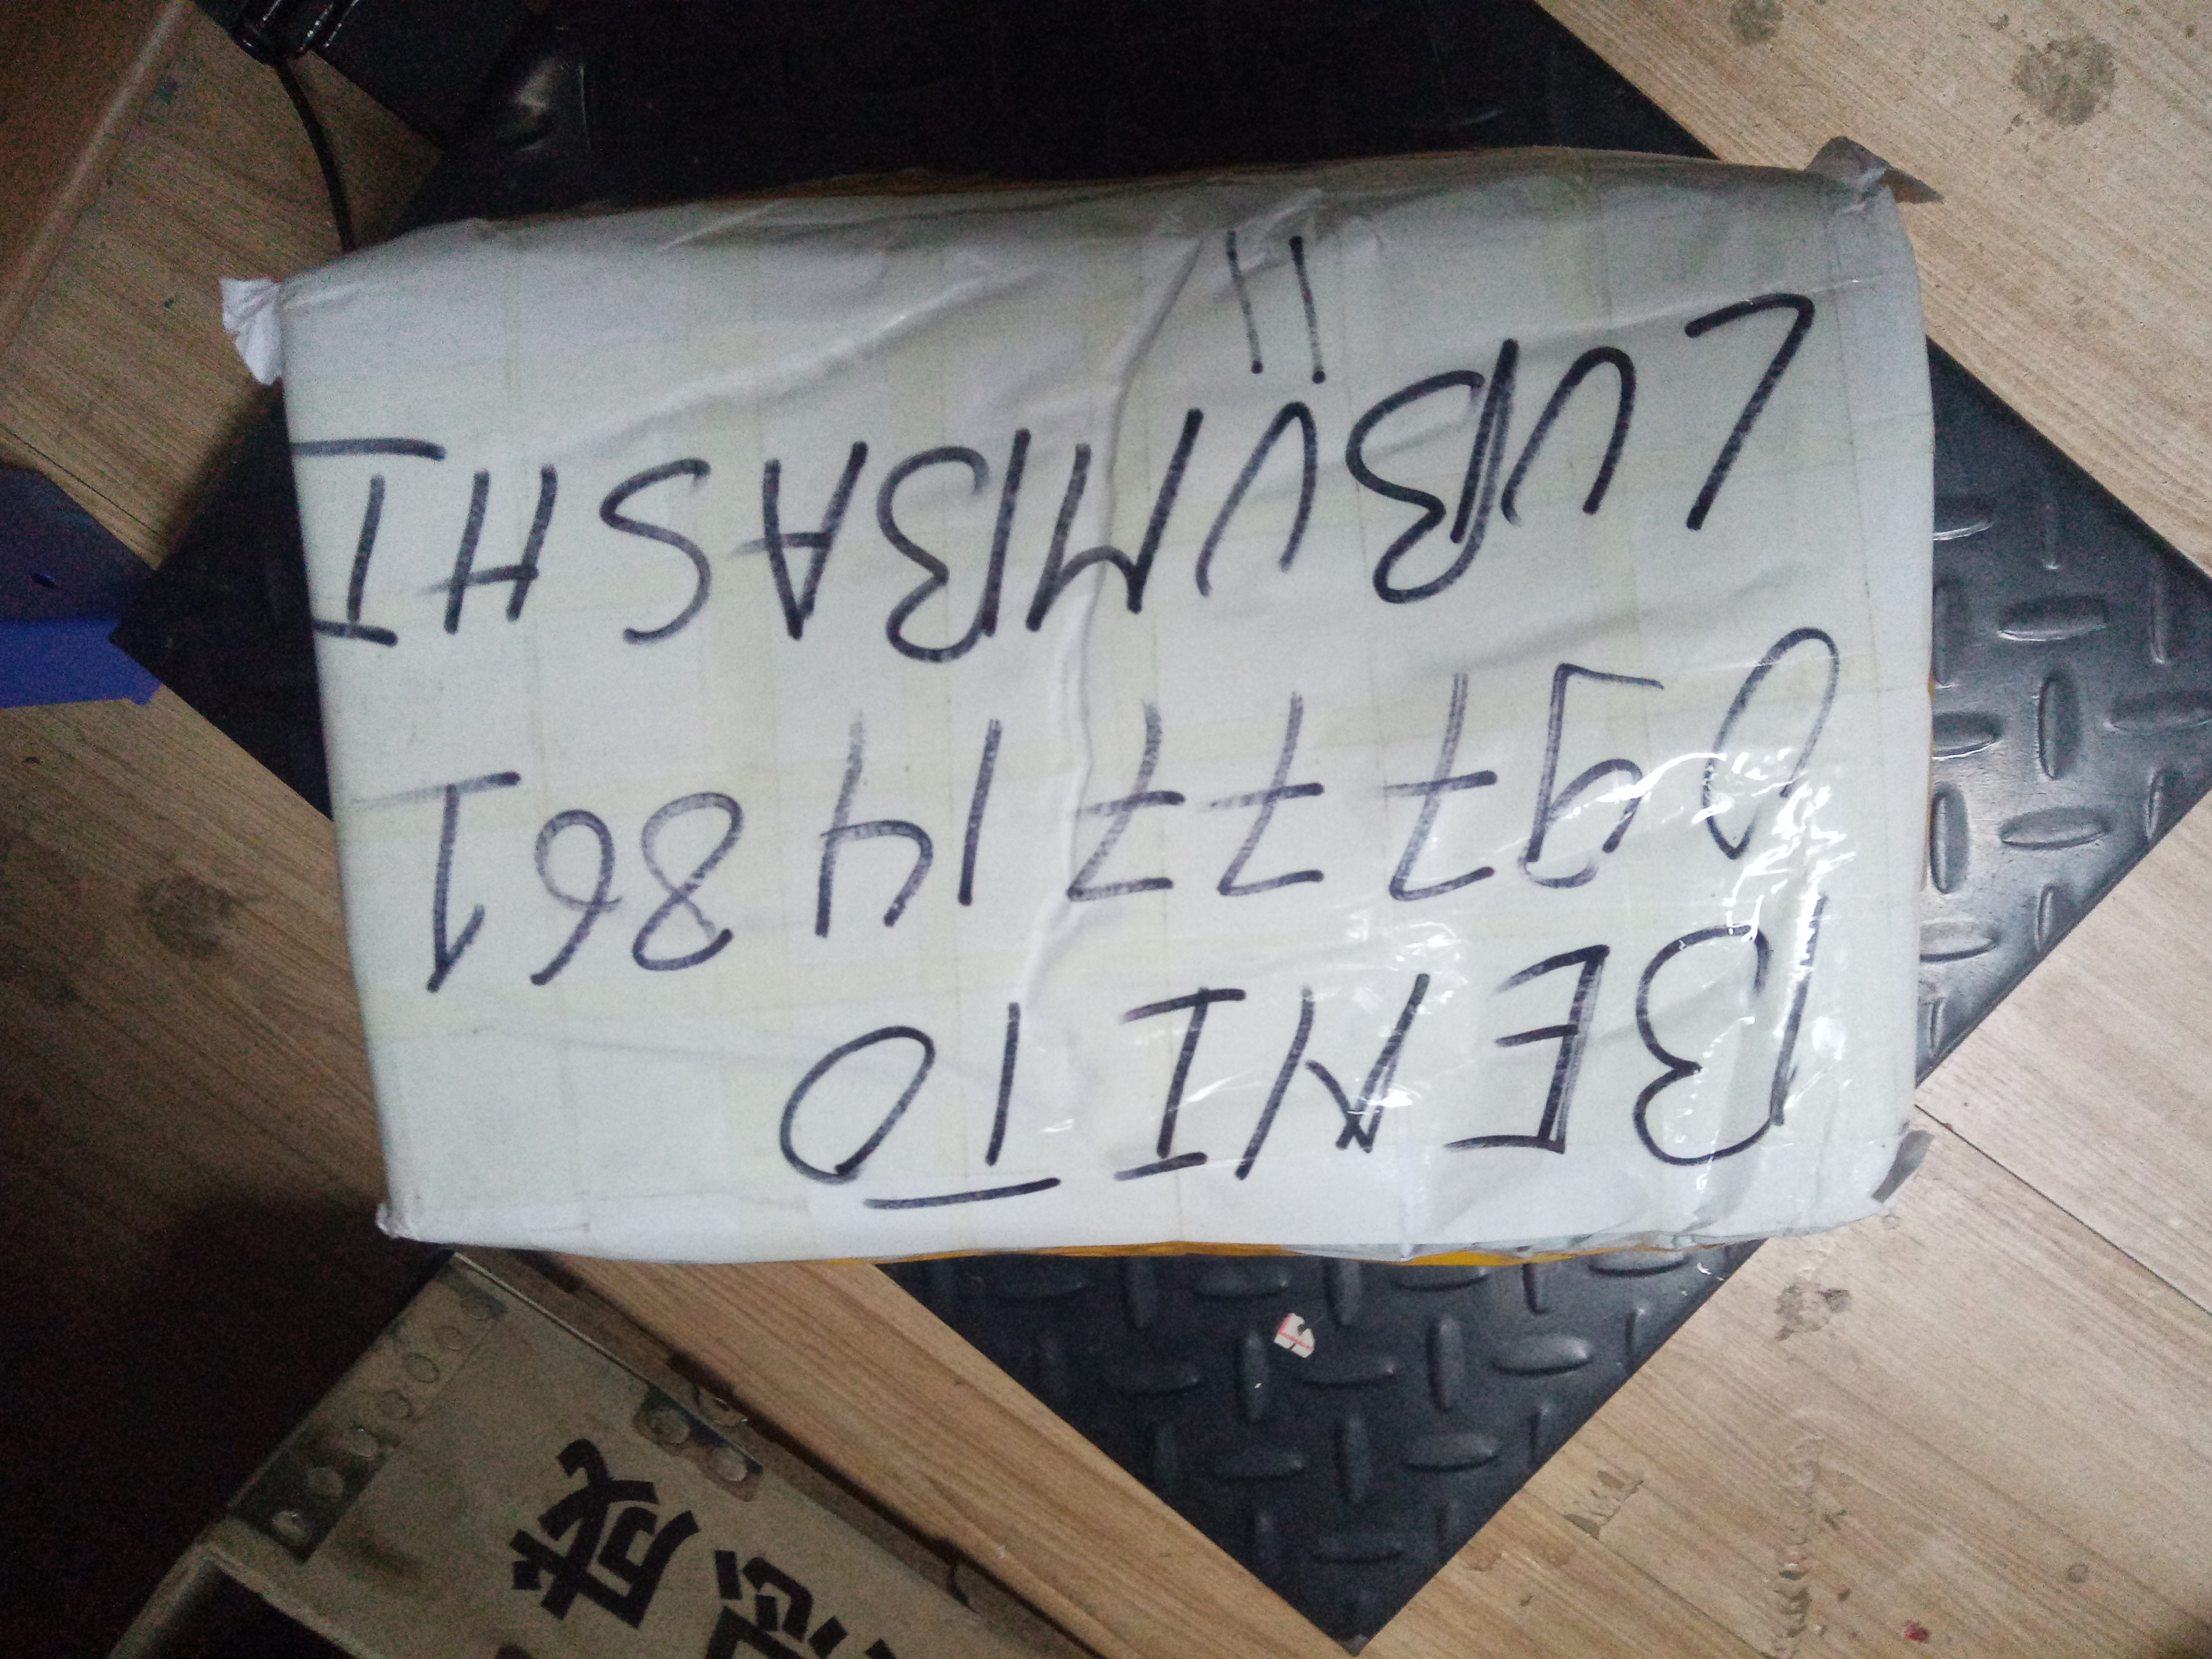 BENITO
0977714861
LUBUMBASHI
!!
成